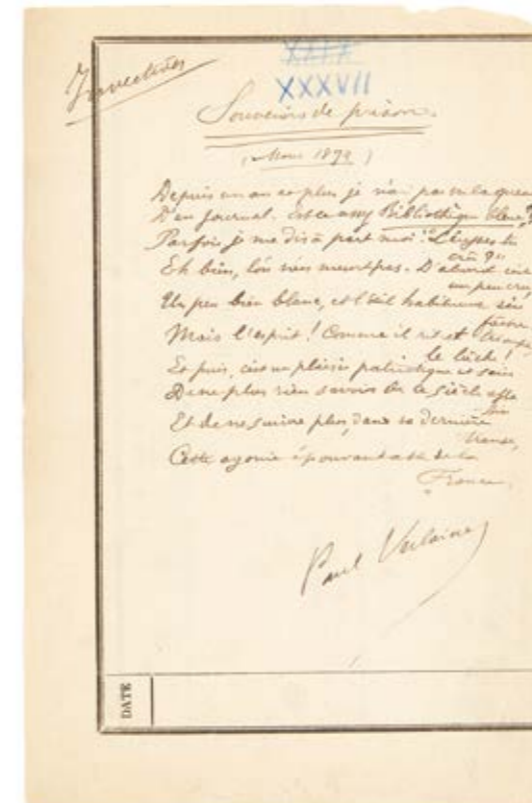 XXIX
XXXVII
Invectives
Souvenirs de prison.
(Mars 1874)
Depuis un an et plus je n'ai pas vu la queue
D'un journal. Est-ce assez Bibliothèque bleue?
Parfois je me dis à part moi: "L'eusses-tu
crû?"
Eh bien, l'on n'en meurt pas. D'abord c'est
un peu cru,
Un peu bien blanc, et l'œil habitueux s'en
fâche
Mais l'esprit! Comme il rit et
le lâche!
Et puis, c'est un plaisir patriotique et sain
De ne plus rien savoir de ce siècle
Et de ne suivre plus, dans sa dernière
transe,
Cette agonie épouvantable de la
France.
Paul Verlaine
DATE